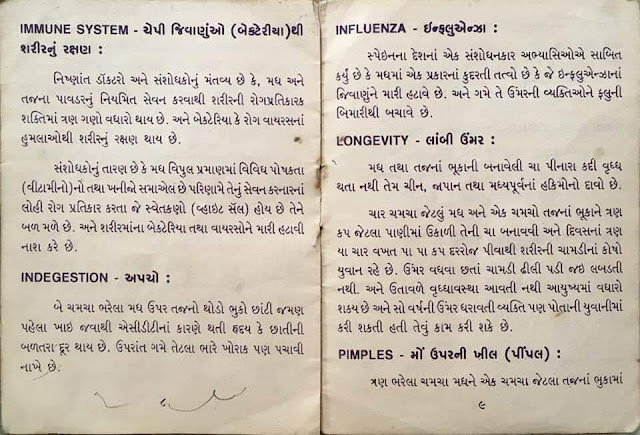 IMMUNE SYSTEM - ચેપી જિવાણુંઓ (બેક્ટેરીયા)થી
શરીરનું રક્ષણ :
નિષ્ણાંત ડૉક્ટરો અને સંશોધકોનું મંતવ્ય છે કે, મધ અને
તજના પાવડરનું નિયમિત સેવન કરવાથી શરીરની રોગપ્રતિકારક
શક્તિમાં ત્રણ ગણો વધારો થાય છે. અને બેકટેરિયા કે રોગ વાયરસનાં
હુમલાઓથી શરીરનું રક્ષણ થાય છે.
સંશોધકોનું તારણ છે કે મધ વિપુલ પ્રમાણમાં વિવિધ પોષકતા
(વીટામીનો)નો તથા ખનીજો સમાએલ છે પરિણામે તેનું સેવન કરનારનાં
લોહી રોગ પ્રતિકાર કરતા જે સ્વેતકણો (વ્હાઇટ સૅલ) હોય છે તેને
બળ મળે છે. અને શરીરમાંના બેક્ટેરિયા તથા વાયરસોને મારી હટાવી
નાશ કરે છે.
INDEGESTION - અપચો :
બે ચમચા ભરેલા મધ ઉપર તજનો થોડો ભુકો છાંટી જમણ
પહેલા ખાઇ જવાથી એસીડીટીનાં કારણે થતી હૃદય કે છાતીની
બળતરા દૂર થાય છે. ઉપરાંત ગમે તેટલા ભારે ખોરાક પણ પચાવી
નાખે છે.
૮
INFLUENZA - ઇન્ફલુએન્ઝા :
સ્પેઇનના દેશનાં એક સંશોધનકાર અભ્યાસિઓએ સાબિત
કર્યું છે કે મધમાં એક પ્રકારનાં કુદરતી તત્વો છે કે જે ઇન્ફલુએન્ઝાનાં
જિવાણુંને મારી હટાવે છે. અને ગમે તે ઉંમરની વ્યક્તિઓને ફલુની
બિમારીથી બચાવે છે.
LONGEVITY - લાંબી ઉંમર :
મધ તથા તજનાં ભૂકાની બનાવેલી ચા પીનારા કદી વૃધ્ધ
થતા નથી તેમ ચીન, જાપાન તથા મધ્યપૂર્વનાં હકિમોનો દાવો છે.
ચાર ચમચા જેટલું મધ અને એક ચમચો તજનાં ભુકાને ત્રણ
કપ જેટલા પાણીમાં ઉકાળી તેની ચા બનાવવી અને દિવસનાં ત્રણ
યા ચાર વખત પા પા કપ દરરોજ પીવાથી શરીરની ચામડીનાં કોષો
યુવાન રહે છે. ઉંમર વધવા છતાં ચામડી ઢીલી પડી જઇ લબડતી
નથી. અને ઉતાવળે વૃધ્ધાવસ્થા આવતી નથી આયુષ્યમાં વધારો
શક્ય છે અને સો વર્ષની ઉંમર ધરાવતી વ્યક્તિ પણ પોતાની યુવાનીમાં
કરી શકતી હતી તેવું કામ કરી શકે છે.
PIMPLES - મોં ઉપરની ખીલ (પીંપલ) :
ત્રણ ભરેલા ચમચા મધને એક ચમચા જેટલા તજનાં ભુકામાં
૯